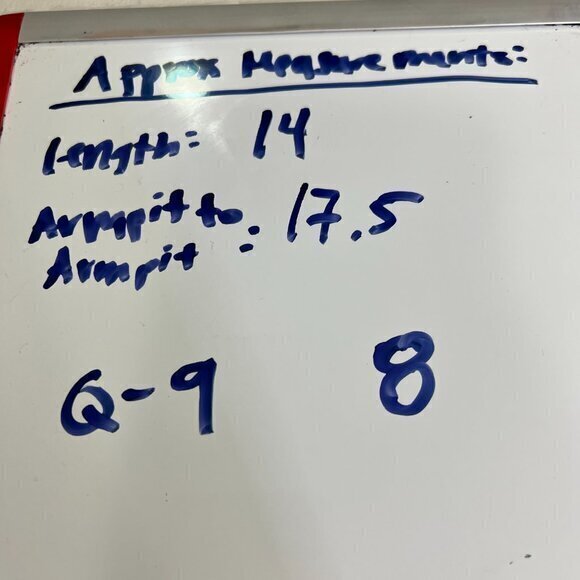 Approx Measurements:
Length: 14
Armpit to
Armpit : 17.5
Q-9 8